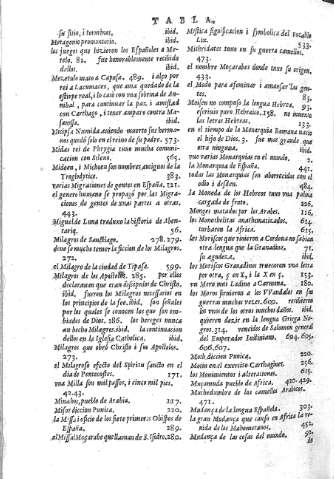 TABLA.
su sitio, i terminos. ibid.
Metagonio promontorio. ibid.
los juegos que hizieron los Españoles a Me-
telo. 82. fue honorablemente recibido
dellos. ibid.
Mezetulo mato a Capusa. 489. i algo por
rei a Lacumaces, que aun quedado de la
estirpe real, lo casò con vna sobrina de An-
nibal, para continuar la paz i amistad
con Carthago, i tener amparo contra Ma-
sanissa. ibid.
Micipsa Numida aviendo muerto sus herma-
nos quedó solo en el reino de su padre. 573.
Midas rei de Phrygia tuvo mucha comuni-
cacion con Eleno. 563.
Midoen, i Michoen son nombres antiguos de los
Trogloditas. 383.
varias Migraciones de gentes en España. 121.
el genero humano se propagò por las Migra-
ciones de gentes de unas partes a otras.
443.
Miguel de Luna traduxo la historia de Aben-
tariq. 56.
Milagros de Sanctiago. 278. 279.
donde se mucho temer la ficcion de los Milagros.
272.
el Milagro de la ciudad de Tipasa. 599.
Milagros de los Apostoles. 285. por ellos
declararon que eran discipulos de Christo.
ibid. fueron los Milagros necessarios en
los principios de la fee. ibid. son señales
por las quales se conocen los que son em-
biados de Dios. 286. los hereges nunca
an hecho Milagros. ibid. la continuacion
dellos en la Iglesia Catholica. ibid.
Milagros que obrò Christo i sus Apostoles.
273.
el Milagroso efeto del Spiritu sancto en el
dia de Pentecostes. 171.
una Milla son mil passos, i cinco mil pies.
42. 43.
Minaeos, pueblo de Arabia. 217.
Misor diccion Punica. 220.
la Missa i oficio de los siete primeros Obispos de
España. 289.
al Missal Mozarabe que llaman de S. Isidro. 280.
Mistica significacion i symbolica del vocablo
Lux. 533.
Mithridates tuvo en su guerra camellos.
473.
el nombre Moçarabes donde tuvo su origen.
433.
el Modo para afeminar i amansar las gen-
tes. 83.
Moisen no compuso la lengua Hebrea. 93.
escriviò puro Hebraico. 158. no invento
las letras Hebreas. 133.
en el tiempo de la Monarquia Romana nacio
el hijo de Dios. 3. fue mas grande que
otra ninguna. ibid.
vuo varias Monarquias en el mundo. 2.
la Monarquia de España. 441.
todas las Monarquias son aborrecidas con el
odio i desden. 484.
la Moneda de los Hebreos tuvo vna palma
cargada de fruto. 226.
Monges matados por los Arabes. 116.
los Monothelitas i monothematicos. 614.
turbaron la Africa. 615.
los Moriscos que vinieron a Cardena no sabian
otra lengua que la Granadina. 71.
su agudeza. ibid.
los Moriscos Granadinos truecaron vna letra
por otra, g en X, i la X en s. 153.
en Mora mes Latino a Carmona. 180.
los Moros sirvieron a los VVandalos en su
guerras muchas vezes. 609. recibieron
dello. ibid.
quieren dezir en la lengua Griega Ne-
gros. 314. vencidos de Salomon general
del Emperador Iustiniano. 694. 695.
696. 697.
Moth diccion Punica. 220.
Motin en el exercito Carthagines. 256.
los Movimientos i alteraciones. 615.
Muçamuda pueblo de Africa. 420. 429.
Muchedumbre de los camellos Arabicos.
471.
Mudança de la lengua Española. 303.
la gran Mudança que causò en Africa la ve-
nida de los Mahometanos. 452.
Mudança de las cosas del mundo. 92.